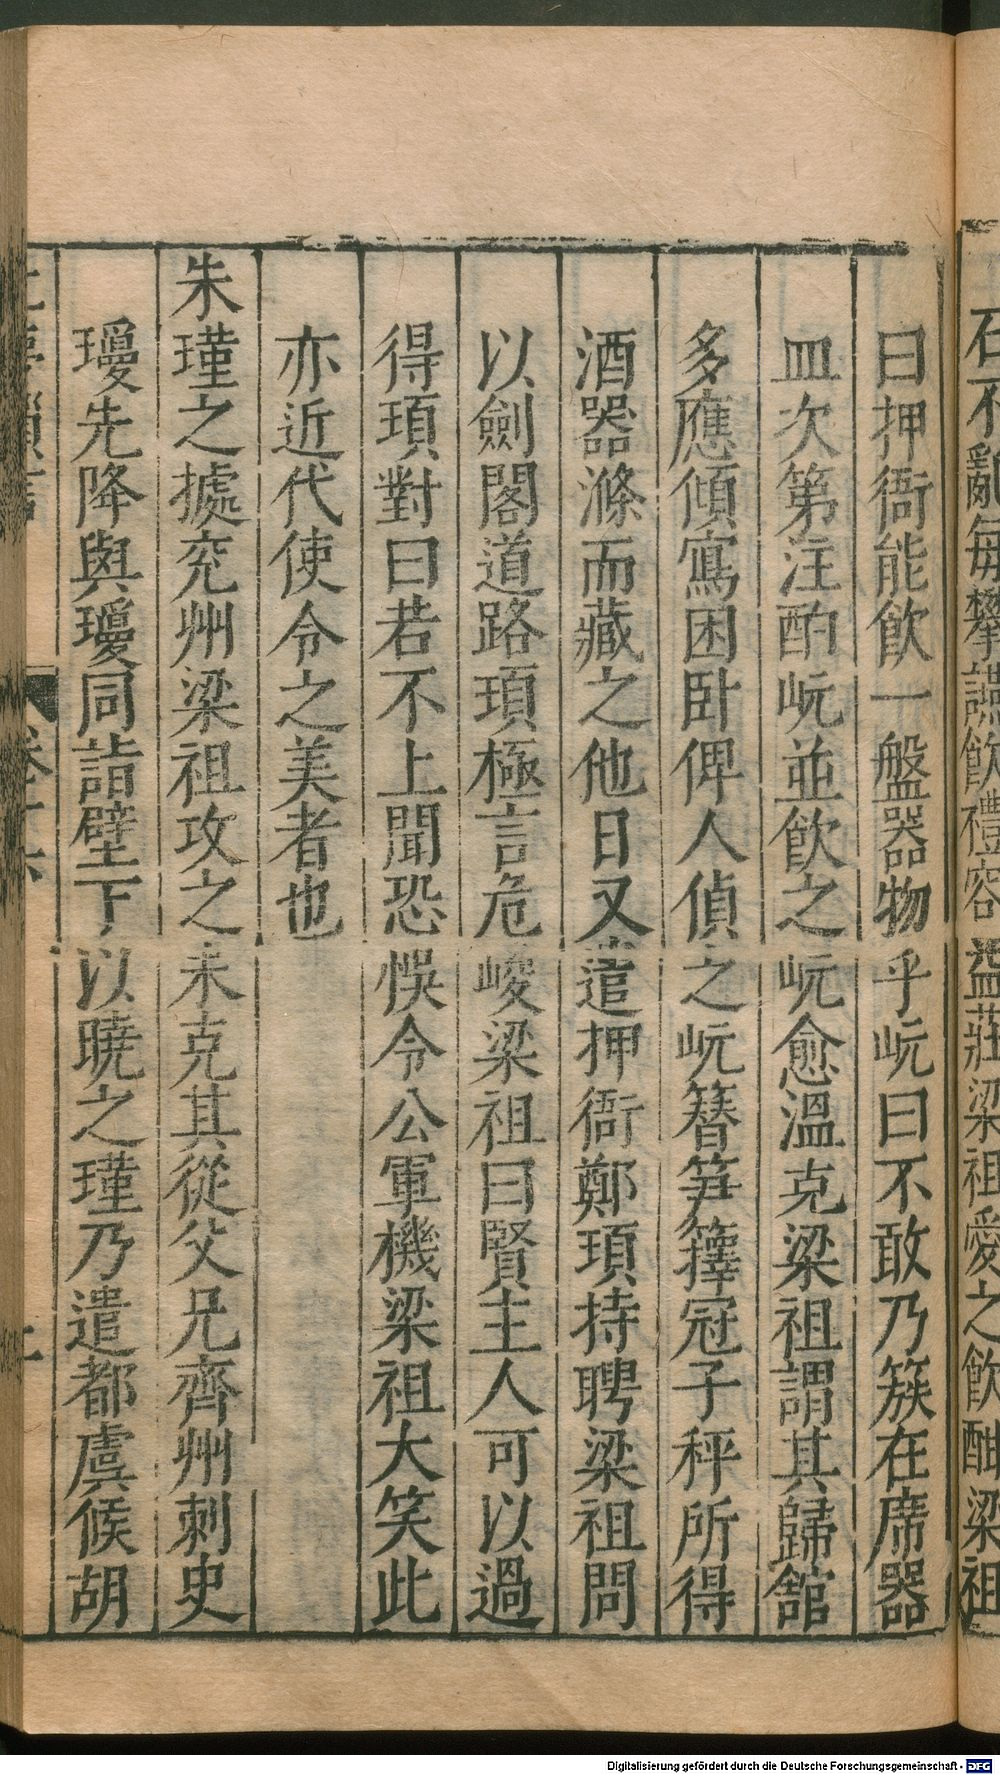 石不亂每攀讌飲禮容益莊梁祖愛之飲酣梁祖
曰押衙能飲一盤器物乎岏曰不敢乃簇在席器
皿次第注酌岏並飲之岏愈溫克梁祖謂其歸舘
多應傾寫困卧俾人偵之岏簪笋籜冠子秤所得
酒器滌而藏之他日又遣押衙鄭頊持聘梁祖問
以劍閣道路頊極言危峻梁祖曰賢主人可以過
得頊對曰若不上聞恐悞令公軍機梁祖大笑此
亦近代使令之美者也
朱瑾之據兖州梁祖攻之未克其從父兄齊州刺史
瓊先降與瓊同詣壁下以曉之瑾乃遣都虞候胡
卷十六
Digitalisierung gefördert durch die Deutsche Forschungsgemeinschaft - DFG